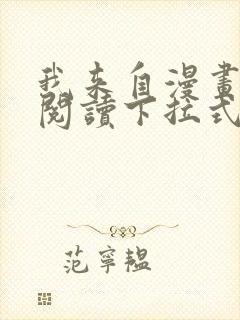 我来自漫畫
閱讀下拉式
范寧韞